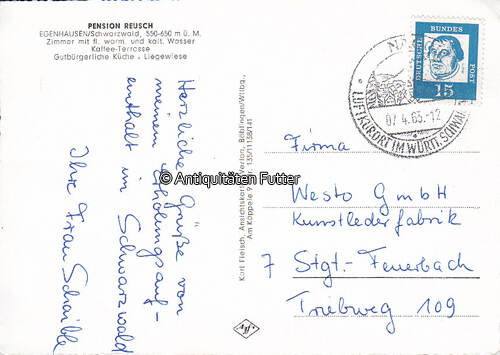 PENSION REUSCH
EGENHAUSEN/Schwarzwald, 550-650 m ü. M.
Zimmer mit fl. warm. und kalt. Wasser
Kaffee-Terrasse
Gutbürgerliche Küche . Liegewiese
Herzliche Grüße von
meinem Erholungsauf-
enthalt im Schwarzwald
Ihre Frau Schaible
Karl Fleisch, Ansichtskarten-Verlag, Böblingen/Wttbg.
Am Käppele 9
135/11 158/141
© Antiquitäten Futter
DEUTSCHE
BUNDES
POST
15
07.4.65-12
LUFTKURORT IM WÜRTT. SCHWA
Firma
Westo GmbH
Kunstlederfabrik
7 Stgt.-Feuerbach
Triebweg 109
Agfa